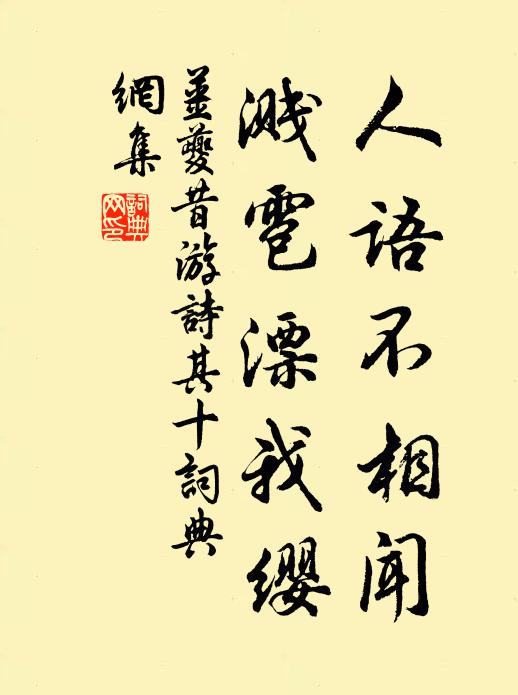 人语不相闻
溅雹漂我缨
姜夔昔游詩其十詞典
網集
詞典网印